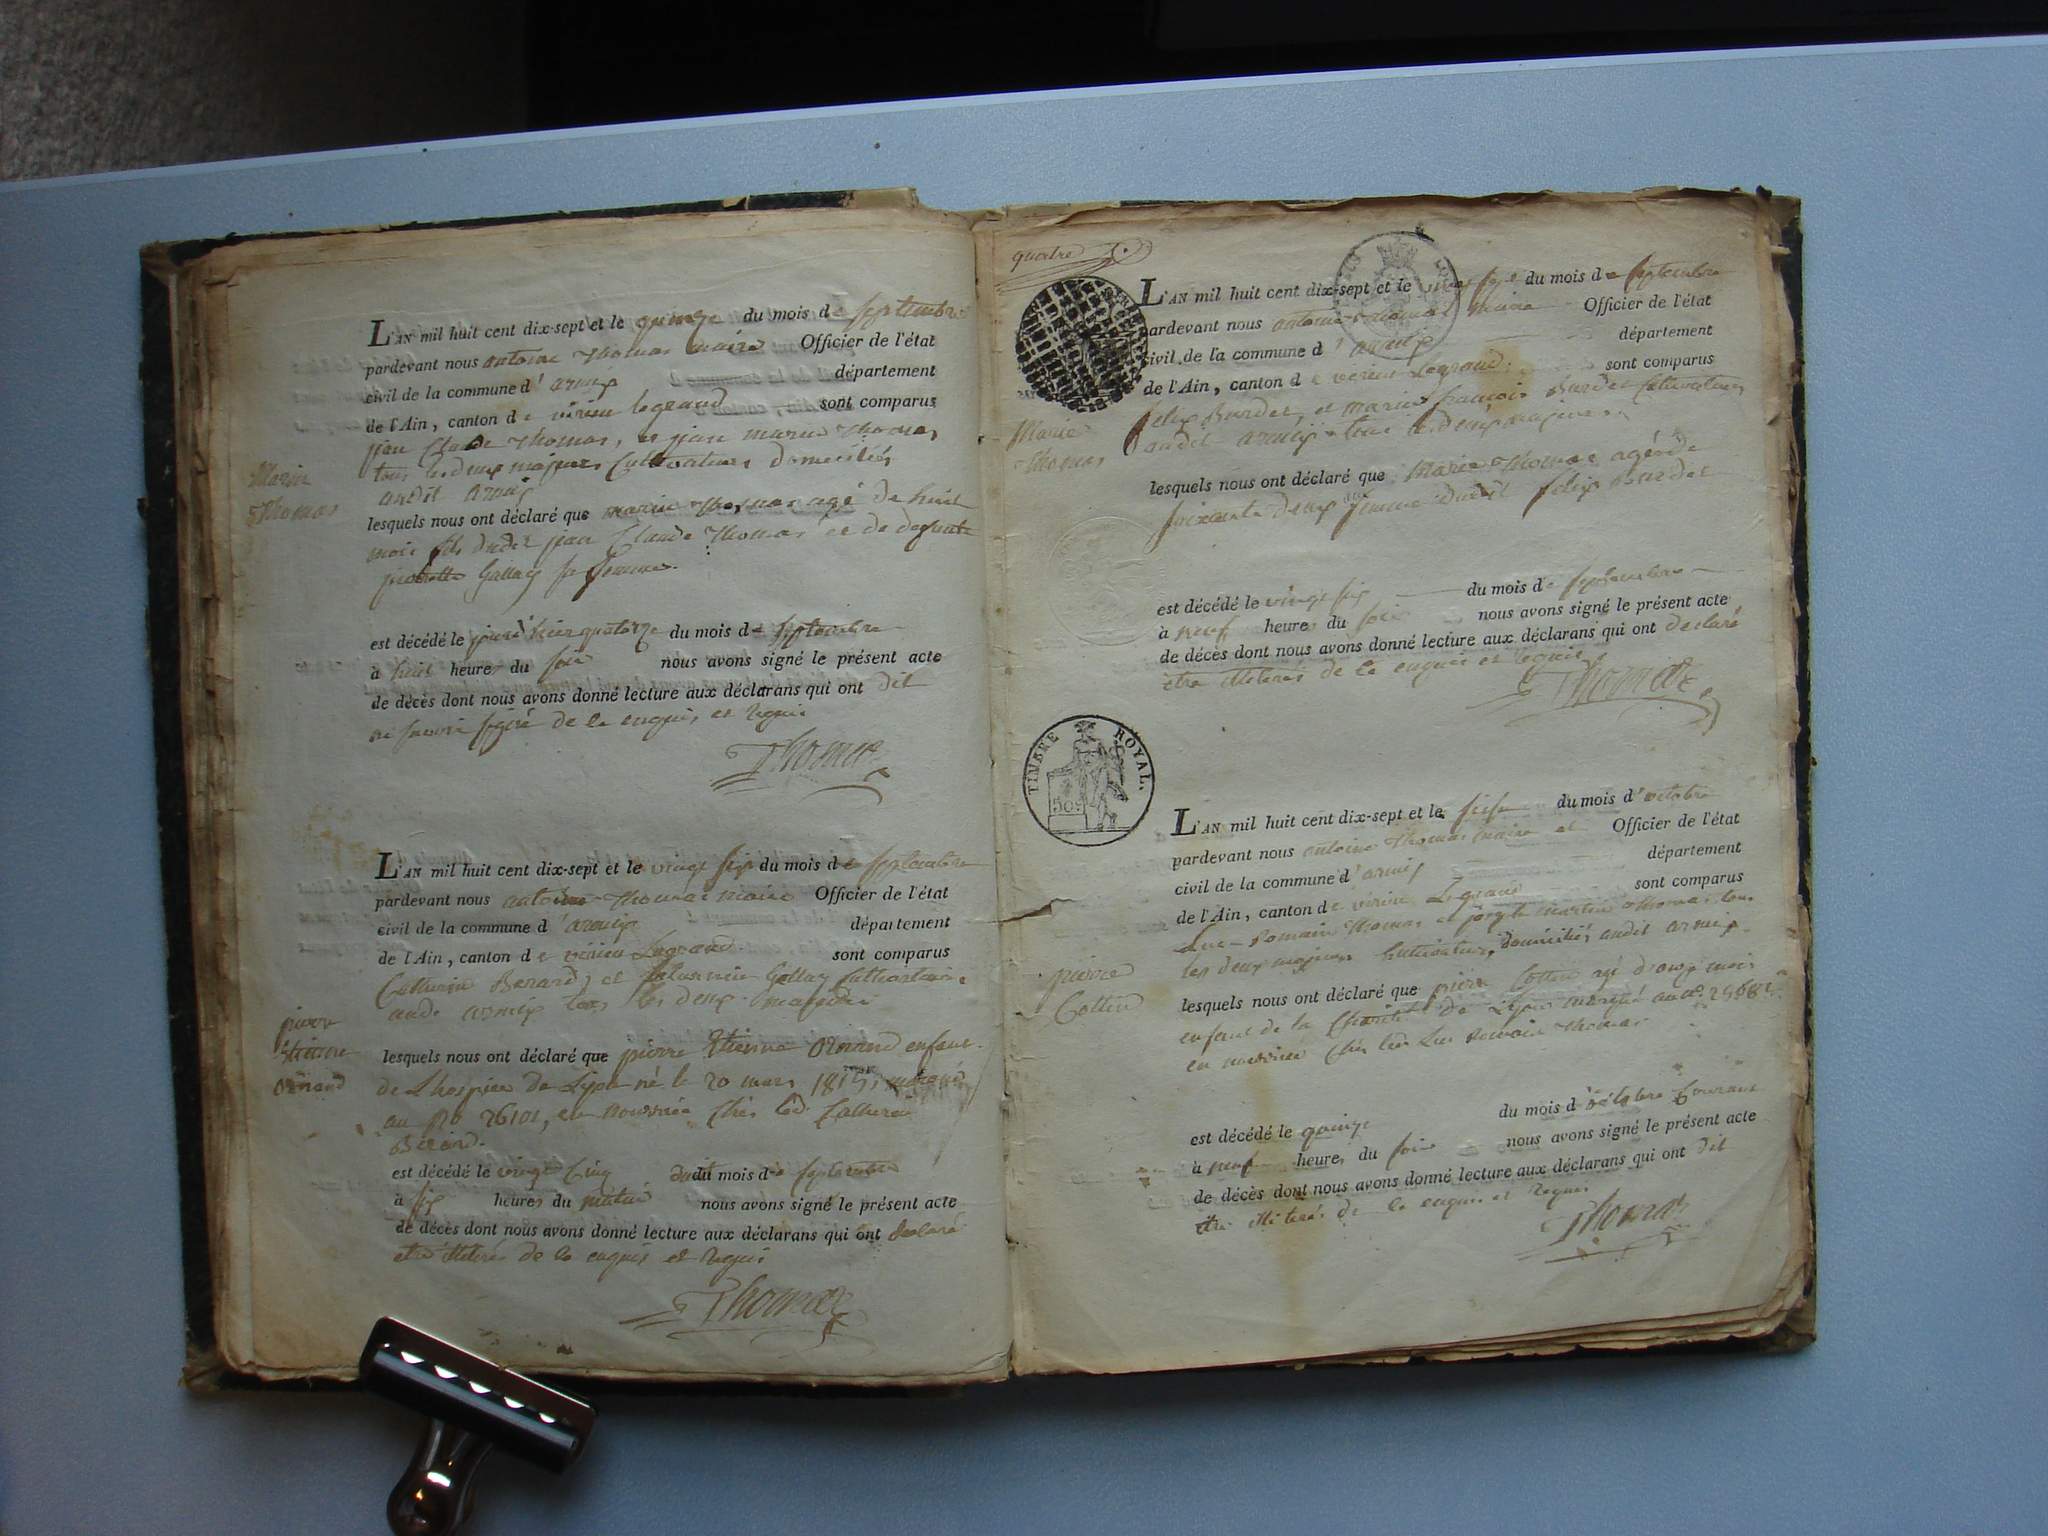 L'AN mil huit cent dix-sept et le quinze du mois de septembre
pardevant nous antoine Thomas maire Officier de l'état
civil de la commune d'armix département
de l'Ain, canton de virieu legrand sont comparus
jean Claude Thomas, et jean marie Thomas
tous les deux majeurs Cultivateurs domiciliés
audit armix
Marin
Thomas
lesquels nous ont déclaré que marin Thomas agé de huit
mois fils dudit jean Claude Thomas et de defunte
Gallay sa femme.
est décédé le jour d'hier quatorze du mois de septembre
à huit heures du soir nous avons signé le présent acte
de décès dont nous avons donné lecture aux déclarans qui ont dit
ne savoir signé de ce enquis et requis
Thomas
L'AN mil huit cent dix-sept et le vingt six du mois de septembre
pardevant nous antoine Thomas maire Officier de l'état
civil de la commune d'armix département
de l'Ain, canton de virieu Legrand sont comparus
Catherine Berard, et Gallay
audit armix tous les deux
pierre
Etienne
lesquels nous ont déclaré que pierre Etienne enfant
de L'hospice de Lyon né le 20 mars 1815, marqué
au no 26101, en nourrice chés led. Catherine
Berard.
est décédé le vingt cinq dudit du mois de septembre
à six heures du matin nous avons signé le présent acte
de décès dont nous avons donné lecture aux déclarans qui ont declaré
etre illiterés de ce enquis et requis
Thomas
quatre
L'AN mil huit cent dix-sept et le vingt sept du mois de septembre
pardevant nous antoine Thomas maire Officier de l'état
civil de la commune d'armix département
de l'Ain, canton de virieu Legrand sont comparus
felix Burdet, et marie françois Burdet Cultivateurs
audit armix tous les deux majeurs
Marie
Thomas
lesquels nous ont déclaré que Marie Thomas agée de
soixante deux ans femme dudit felix Burdet
est décédé le vingt six du mois de septembre
à neuf heures du soir nous avons signé le présent acte
de décès dont nous avons donné lecture aux déclarans qui ont declaré
etre illiterés de ce enquis et requis
Thomas
TIMBRE ROYAL.
50c
L'AN mil huit cent dix-sept et le seise du mois d'octobre
pardevant nous antoine Thomas maire et Officier de l'état
civil de la commune d'armix département
de l'Ain, canton de virieu Legrand sont comparus
Luc Romain Thomas et joseph martin Thomas tous
les deux majeurs Cultivateurs, domiciliés audit armix
pierre
Cottin
lesquels nous ont déclaré que pierre Cottin agé d'onze mois
enfant de la Charité de Lyon marqué au no
en nourrice chés led. Luc Romain Thomas
est décédé le quinze du mois d'octobre Courant
à neuf heures du soir nous avons signé le présent acte
de décès dont nous avons donné lecture aux déclarans qui ont dit
etre illiterés de ce enquis et requis
Thomas